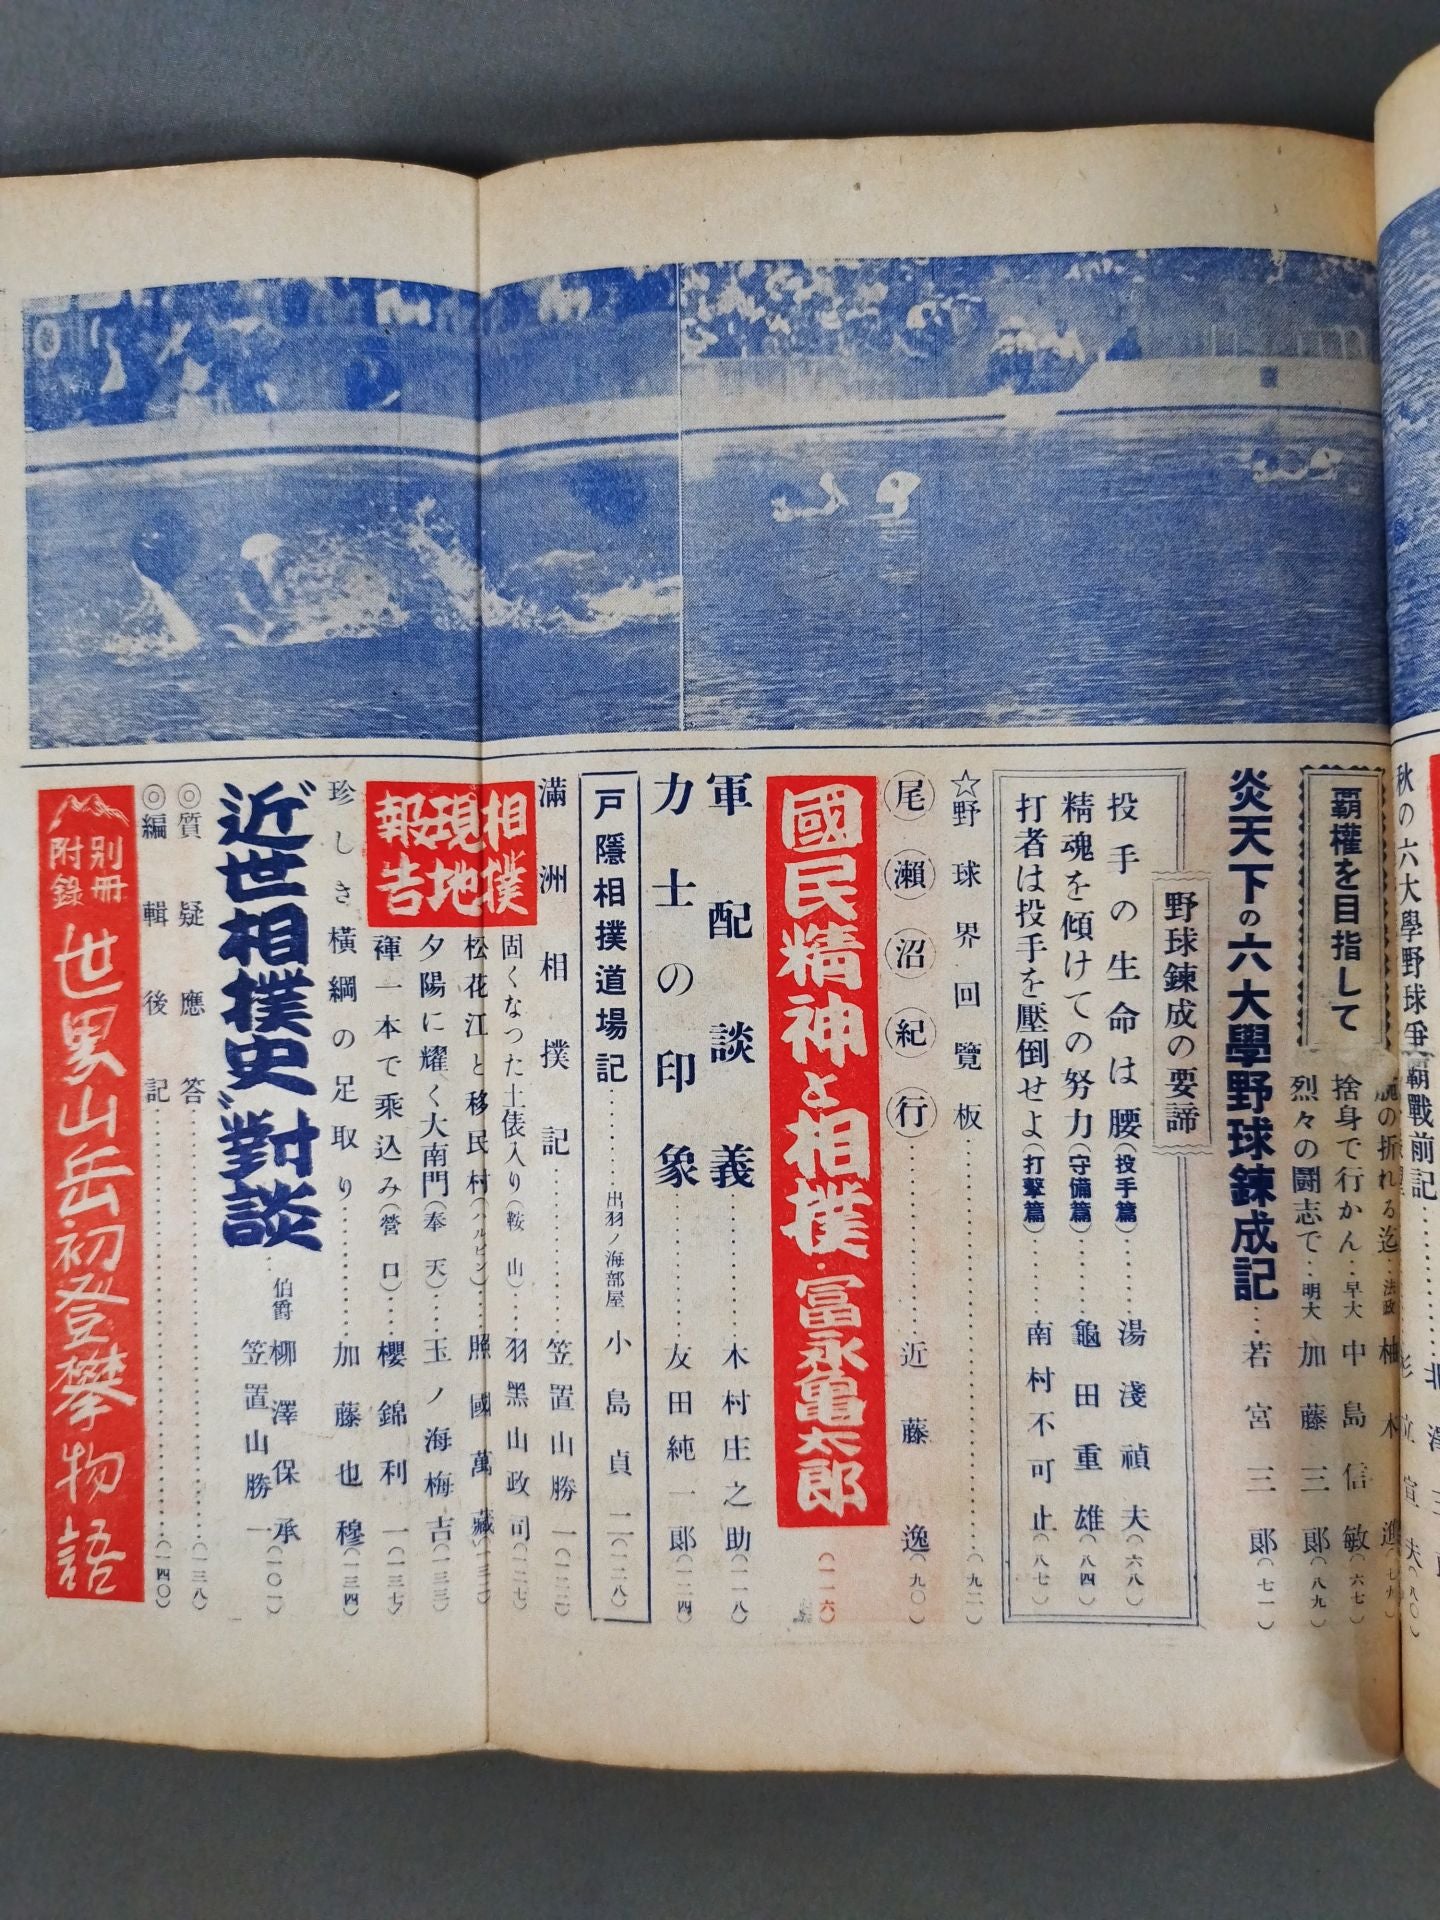 秋の六大學野球爭覇戰前記
覇權を目指して
腕の折れる迄‥法政 柚木進(七九)
捨身で行かん‥早大 中島信敏(六七)
烈々の闘志で‥明大 加藤三郞(八九)
炎天下の六大學野球鍊成記…若宮三郞(七一)
野球鍊成の要諦
投手の生命は腰(投手篇)……湯淺禎夫(六八)
精魂を傾けての努力(守備篇)……龜田重雄(八四)
打者は投手を壓倒せよ(打擊篇)……南村不可止(八七)
☆野球界回覽板……(九二)
尾瀨沼紀行……近藤逸(九〇)
國民精神と相撲・冨永亀太郎(一一六)
軍配談義……木村庄之助(一一八)
力士の印象……友田純一郞(一二四)
戸隱相撲道場記……出羽ノ海部屋 小島貞二(一二八)
滿洲相撲記……笠置山勝一(一二二)
相撲現地報告
固くなつた土俵入り(鞍山)…羽黑山政司(一二七)
松花江と移民村(ハルビン)…照國萬藏(一三一)
夕陽に耀く大南門(奉天)…玉ノ海梅吉(一三三)
褌一本で乘込み(營口)…櫻錦利一(一三七)
珍しき橫綱の足取り……加藤也穆(一三四)
〝近世相撲史〟對談…伯爵 柳澤保承
笠置山勝一(一〇一)
◎質疑應答……(一三八)
◎編輯後記……(一四〇)
別冊附錄 世界山岳初登攀物語